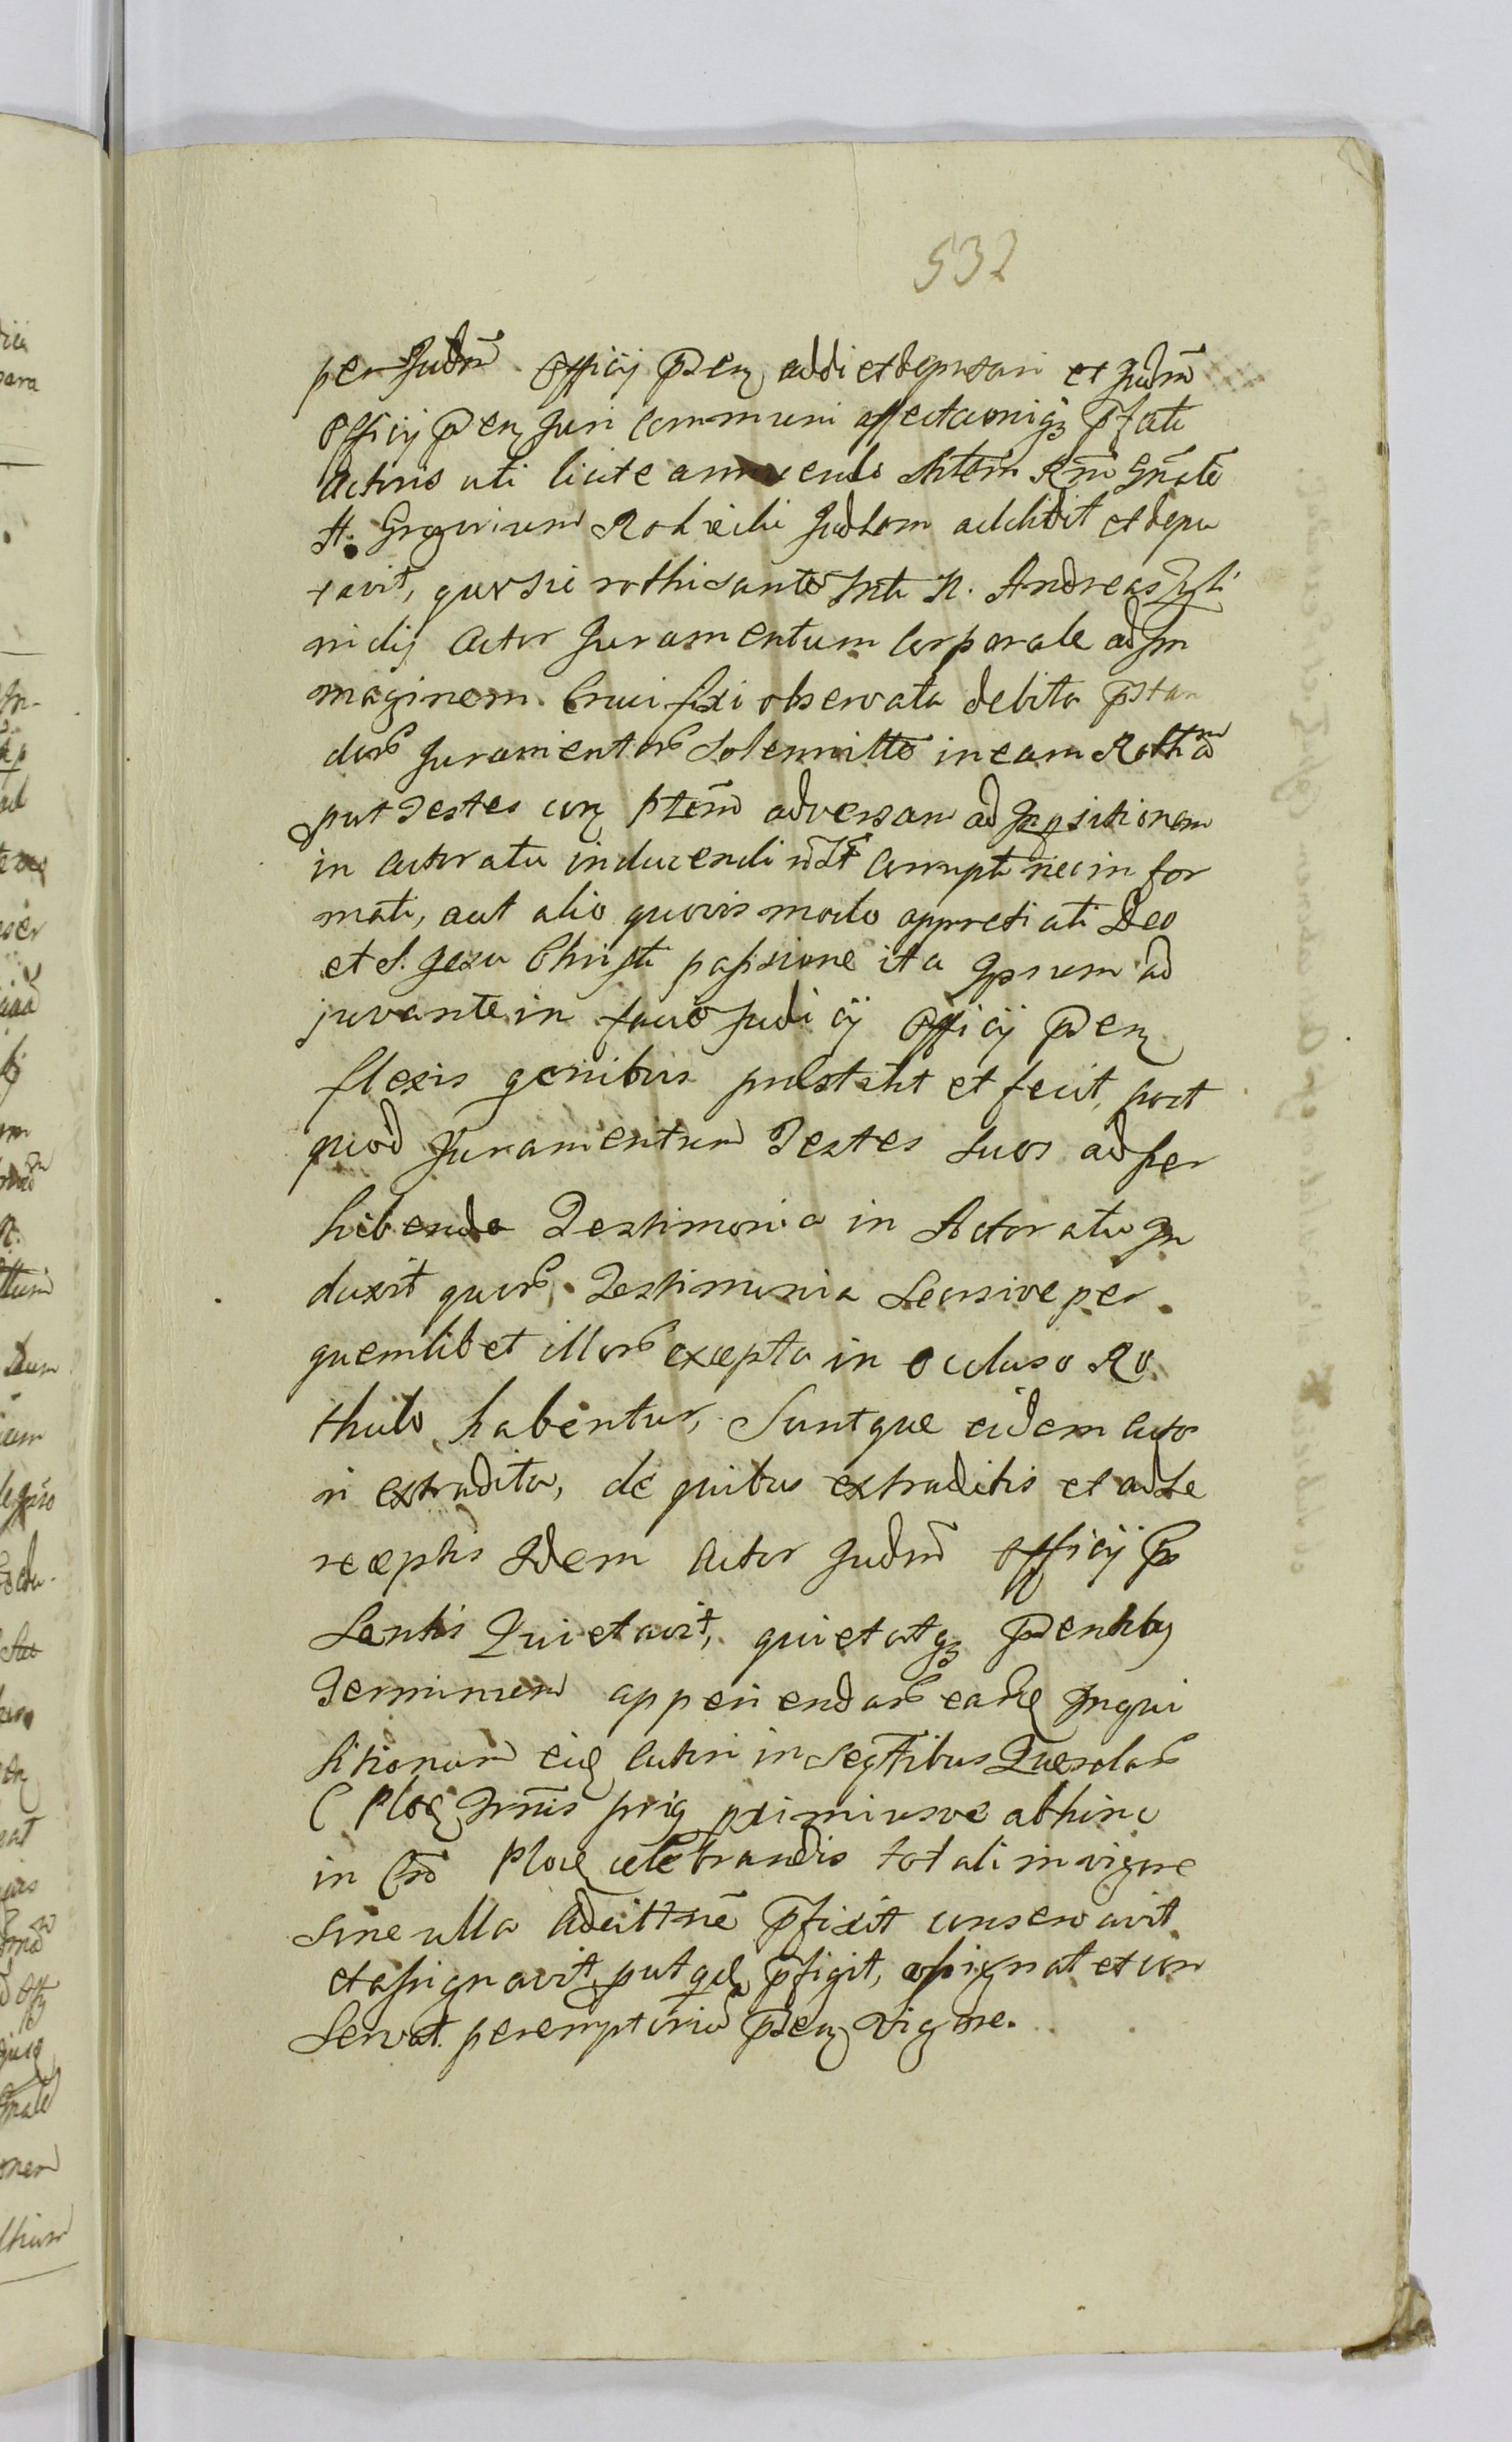 532
per Judm Officij pñtis addi et deputari et Judm
Officij pñtis Juri communi affectaoniq3 pfati
Actoris uti licite annuendo Mtem Rm Gnale
N. Gregorium Judlem addidit et depu
tavit, quo sic rothisante Mti N. Andreas
nidij Actor Juramentum Corporale ad Im
maginem Crucifixi observata debita pstan
dorũ Juramentorũ Solemnitte in eam Rothm
put Testes contra ptem adversam ad Inqsitionem
in Actoratu inducendi Corrupti nec in for
mati, aut alio quovis modo appretiati Deo
et S. Jesu Christi passione ita Ipsum ad
juvante in facie Judicij Officij pñtis
flexis genibus prestitit et fecit, post
quod Juramentum Testes suos ad per
hibenda Testimonia in Actoratu In
duxit quorũ Testimonia Seorsive per
quemlibet illorũ excepta in occluso Ro
thulo habentur, Suntque eidem Acto
ri extradita, de quibus extraditis et ad se
receptis Idem Actor Judm Officij prę
sentis Quietavit, quietatq3 pñtibus
Terminum apperiendarũ earde Inqui
sitionum eid Actori in Seqtibus Querelarũ
C Ploc Trmis prig pximiusve abhinc
in Cro Ploc celebrandis totali in vigore
sine ulla Adcittne pfixit conservavit
et assignavit, put qde pfigit, assignat et con
servat peremptorie pñtis vigore.